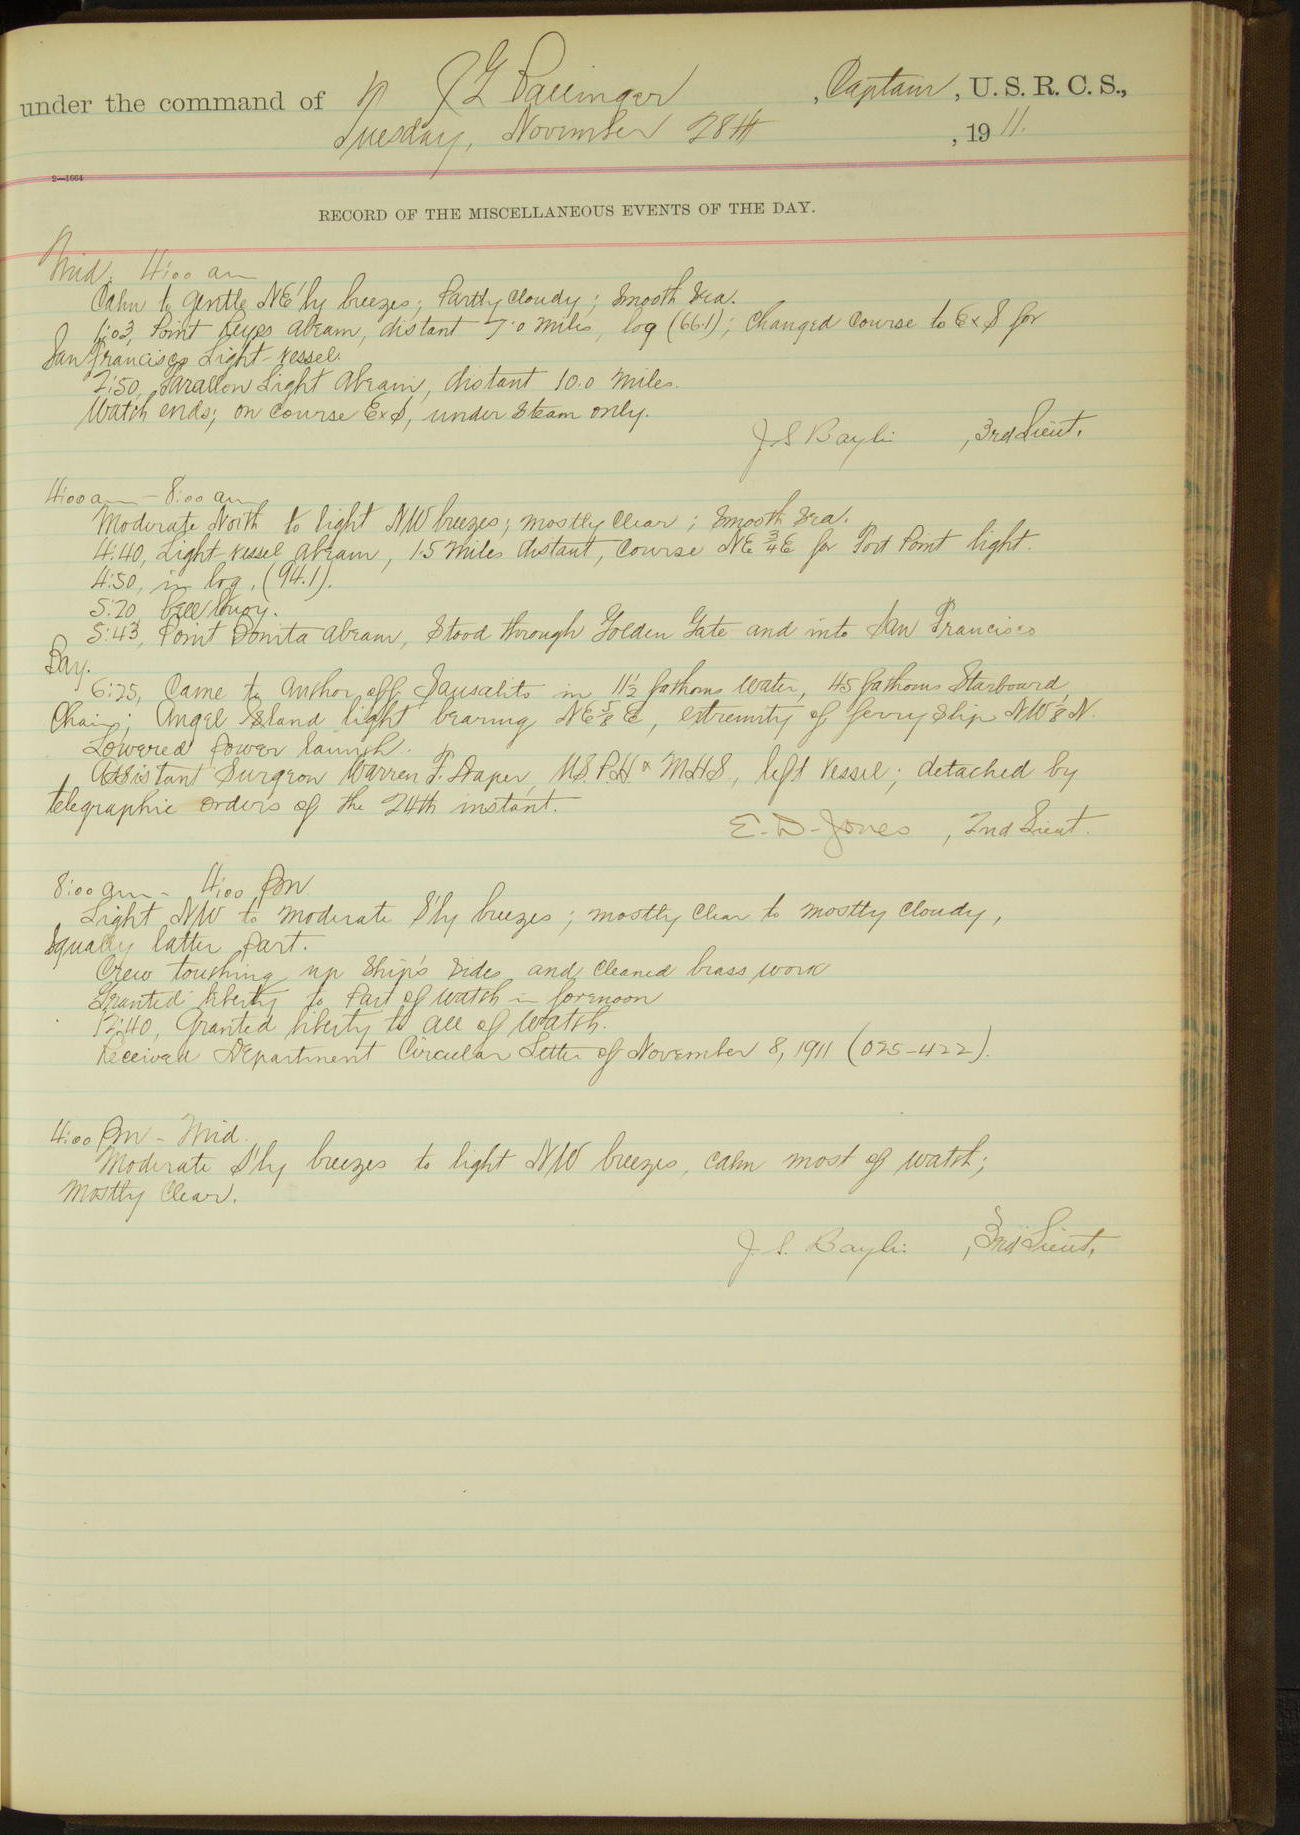 under the command of J G Ballinger, Captain, U. S. R. C. S.,
Tuesday, November 28th, 1911.
2—1664
RECORD OF THE MISCELLANEOUS EVENTS OF THE DAY.
Mid. 4:00 am
Calm to gentle NE'ly breezes; Partly Cloudy; Smooth Sea.
1:03, Point Reyes abeam, distant 7.0 miles, log (66.1); Changed Course to ExS for
San Francisco Light-vessel.
2:50, Farallon Light Abeam, distant 10.0 miles.
Watch ends; on course ExS, under Steam only.
J. S Baylis, 3rd Lieut.
4:00 am - 8:00 am
Moderate North to light NW breezes; mostly Clear; Smooth Sea.
4:40, Light vessel abeam, 1.5 miles distant, Course NE 3/4 E for Fort Point light.
4:50, in log, (94.1).
5:20, bell buoy.
5:43, Point Bonita abeam, Stood through Golden Gate and into San Francisco
Bay.
6:25, Came to anchor off Sausalito in 11½ fathoms water, 45 fathoms Starboard
Chain; Angel Island light bearing NE 5/8 E, extremity of ferry Slip NW 1/8 N.
Lowered Power launch.
Assistant Surgeon Warren F. Draper, U.S. P.H & M.H.S., left vessel; detached by
telegraphic orders of the 24th instant.
E. D. Jones, 2nd Lieut.
8:00 am - 4:00 Pm
Light NW to moderate S'ly breezes; mostly clear to mostly Cloudy,
Squally latter Part.
Crew touching up Ship's Sides and cleaned brass work
Granted liberty to Part of watch in forenoon
12:40, Granted liberty to all of Watch.
Received Department Circular Letter of November 8, 1911 (025-422).
4:00 Pm - Mid.
Moderate S'ly breezes to light NW breezes, calm most of watch;
Mostly Clear.
J. S. Baylis, 3rd Lieut,